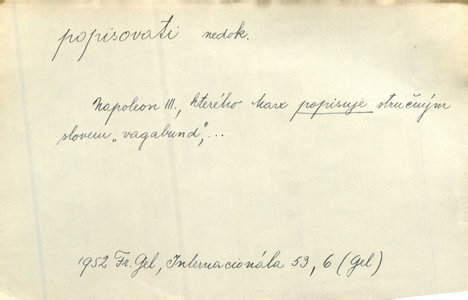 popisovati nedok.
Napoleon III., kterého Marx popisuje stručným
slovem „vagabund“,...
1952 Fr. Gel, Internacionála 53, 6 (Gel)